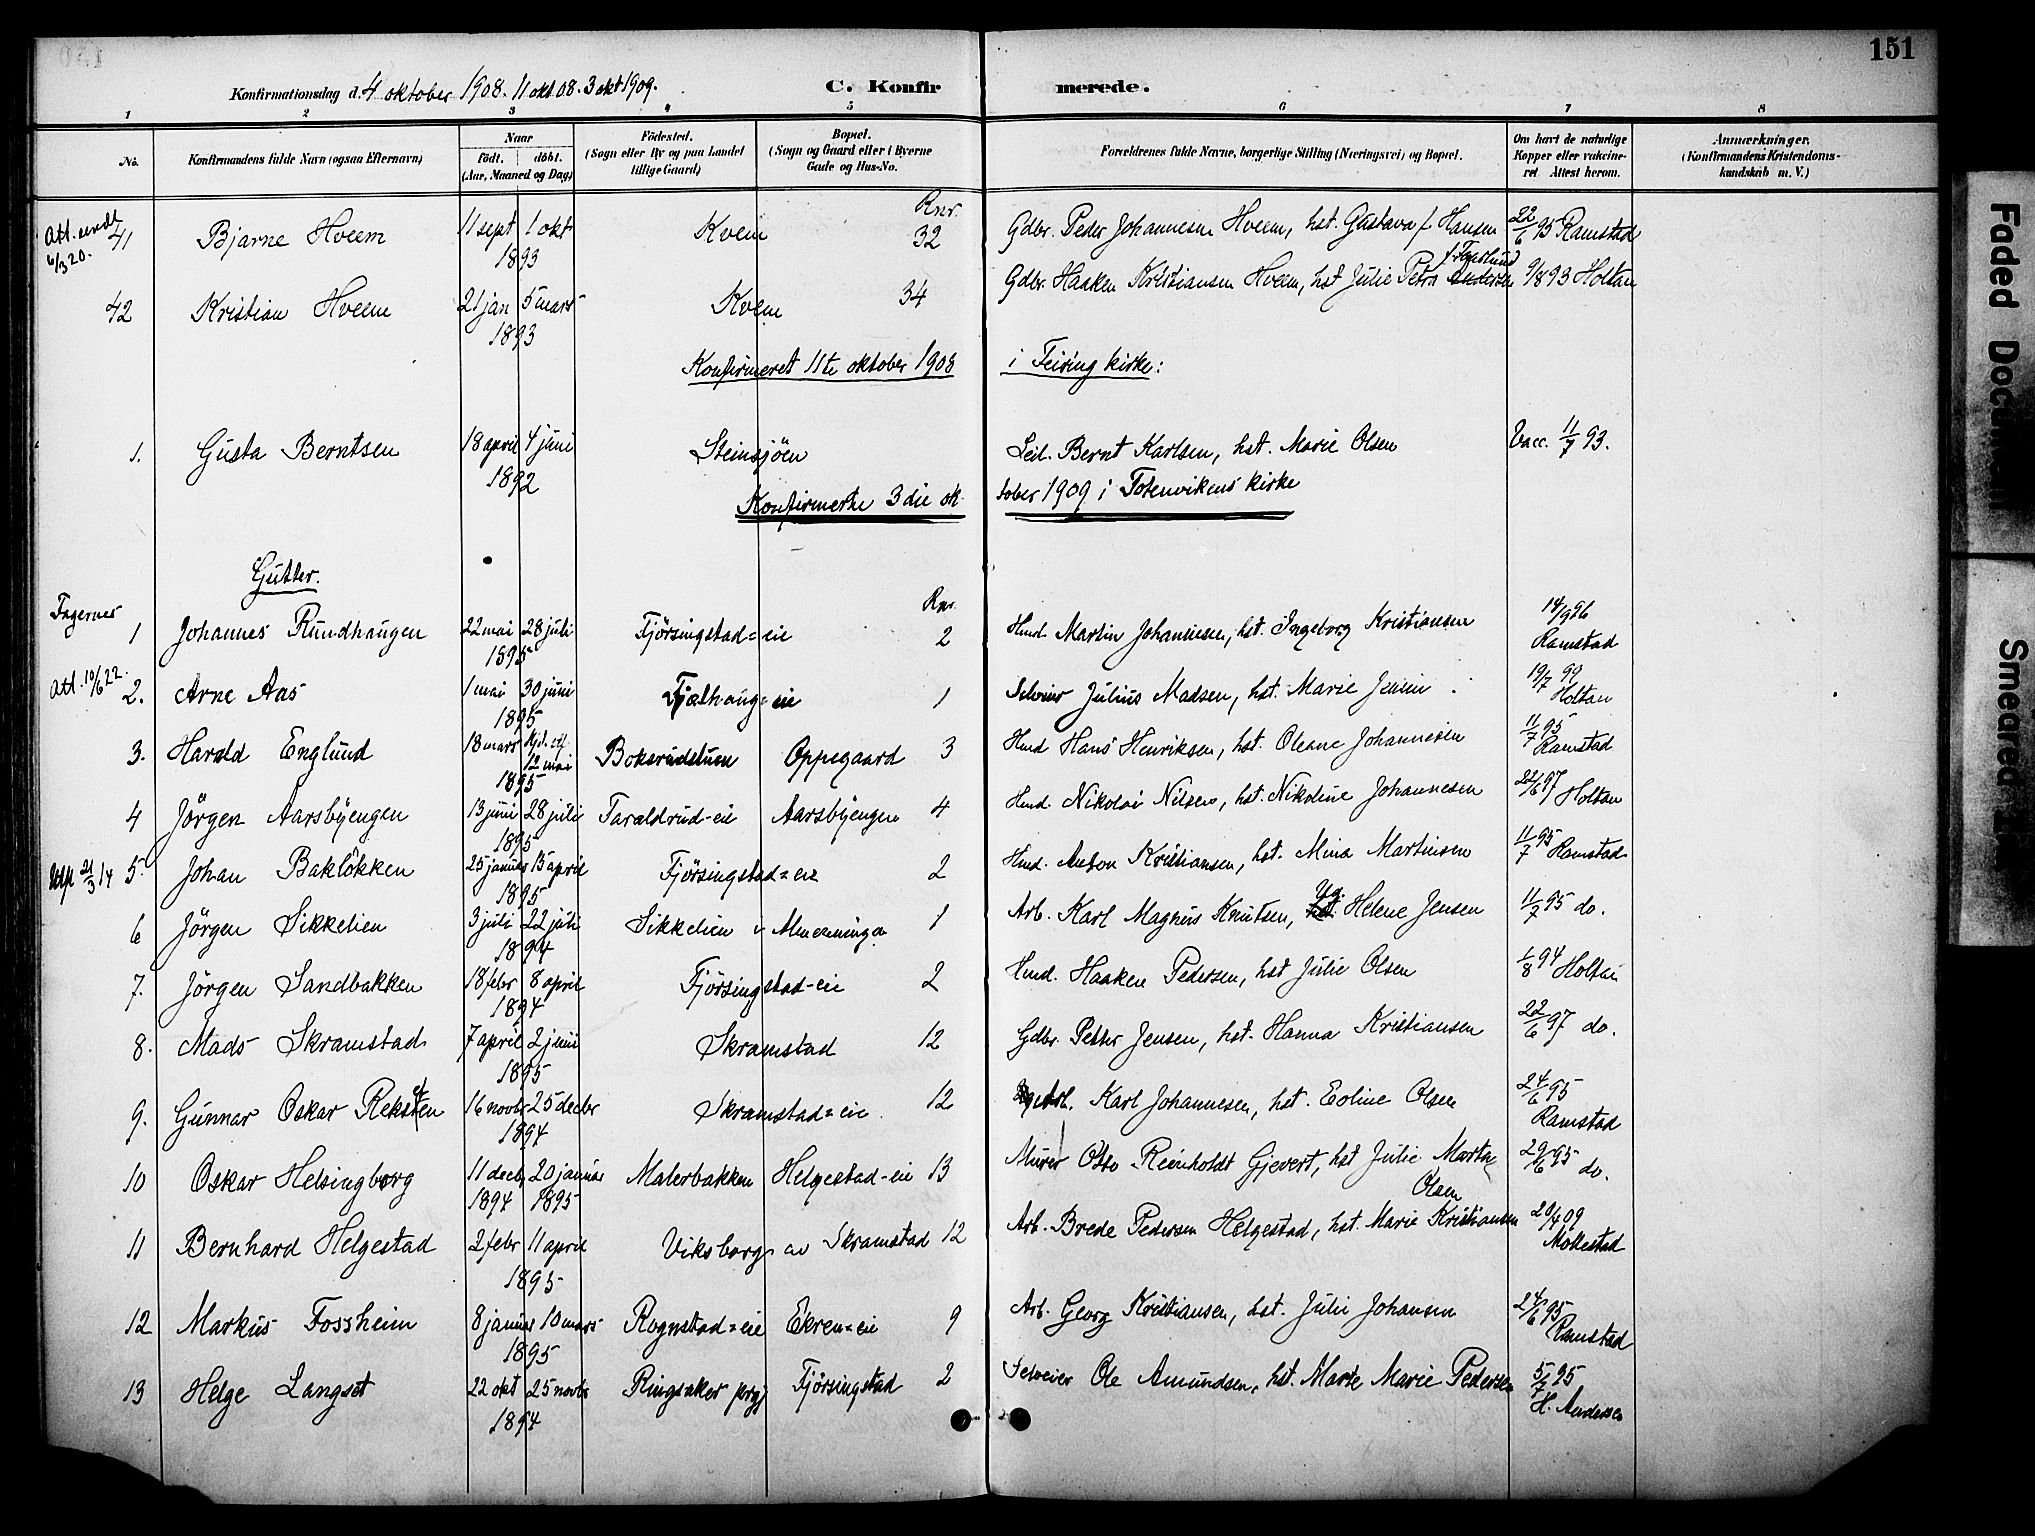 151
Konfirmationsdag d. 4 oktober 1908. 11 okt 08. 3 okt 1909. C. Konfirmerede.
1 2 3 4 5 6 7 8
No. Konfirmandens fulde Navn (ogsaa Efternavn) Naar født. døbt. (Aar, Maaned og Dag) Fødested. (Sogn eller By og paa Landet tillige Gaard) Bopæl. (Sogn og Gaard eller i Byerne Gade og Hus-No. Forældrenes fulde Navne, borgerlige Stilling (Næringsvei) og Bopæl. Om havt de naturlige Kopper eller vakcineret Attest herom. Anmærkninger. (Konfirmandens Kristendomskundskab m. V.)
Rnr.
Att. sendt 6/3 20. 41 Bjarne Hveem 11 sept 1 okt 1893 Kvem 32 Gdbr. Peder Johannesen Hveem, hst. Gustava f. Hansen 22/6 95 Ramstad
42 Kristian Hveem 21 jan 5 mars 1893 Kvem 34 Gdbr. Haaken Kristiansen Hveem, hst Julie Petra 9/8 93 Holtan
Konfirmeret 11te oktober 1908 i Feiring kirke:
1. Gusta Berntsen 18 april 4 juni 1892 Steinsjöen Leil. Bernt Karlsen, hst. Marie Olsen Vacc. 11/7 93.
Konfirmerte 3die oktober 1909 i Totenvikens kirke
Gutter.
Rnr.
Fagernes 1 Johannes Rundhaugen 22 mai 28 juli 1895 Fjörsingstad=eie 2 Hmd. Martin Johannesen, hst. Ingeborg Kristiansen 14/9 96 Ramstad
Att. 10/6 22. 2. Arne Aas 1 mai 30 juni 1895 Fjælhaug=eie 1 Selveier Julius Madsen, hst. Marie Jensen 19/7 99 Holtan
3. Harald Englund 18 mars Kjd. stf. 12 mai 1895 Boksrudstuen Oppegaard 3 Hmd Hans Henriksen, hst. Oleane Johannesen 11/7 95 Ramstad
4 Jörgen Aarsbyengen 13 juni 28 juli 1895 Taraldrud-eie Aarsbyengen 4 Hmd. Nikolai Nilsen, hst. Nikoline Johannesen 22/6 97 Holtan
21/3 14 5. Johan Baklökken 25 januar 15 april 1895 Fjörsingstad=eie 2 Hmd. Anton Kristiansen, hst. Mina Martinsen 11/7 95 Ramstad
6 Jörgen Sikkelien 3 juli 22 juli 1894 Sikkelien i Almenningen 1 Arb. Karl Magnus Knutsen, Ug. Helene Jensen 11/7 95 do.
7. Jörgen Sandbakken 18 febr 8 april 1894 Fjörsingstad-eie 2 Hmd. Haaken Pedersen, hst Julie Olsen 1/8 94 Holtan
8. Mads Skramstad 7 april 2 juni 1895 Skramstad 12 Gdbr. Petter Jensen, hst. Hanna Kristiansen 22/6 97 do.
9. Gunnar Oskar Reksten 16 novbr 25 decbr 1894 Skramstad=eie 12 Arb. Karl Johannesen, hst. Eoline Olsen 24/6 95 Ramstad
10 Oskar Helsingborg 11 decbr 1894 20 januar 1895 Malerbakken Helgestad-eie 13 Murer Otto Reinholdt Gjevert, hst Julie Marta Olsen 29/6 95 do.
11 Bernhard Helgestad 2 febr 11 april 1895 Viksborg av Skramstad 12 Arb. Brede Pedersen Helgestad, hst. Marie Kristiansen 20/4 09 Mollestad
12 Markus Fossheim 8 januar 10 mars 1895 Rognstad=eie Ekren=eie 9 Arb. Georg Kristiansen, hst. Julie Johansen 24/6 95 Ramstad
13 Helge Langset 22 okt 25 novbr 1894 Ringsaker prgj Fjörsingstad 2 Selveier Ole Amundsen, hst. Marte Marie Pedersen 5/7 95 H. Andersen
Faded Document
Smeared